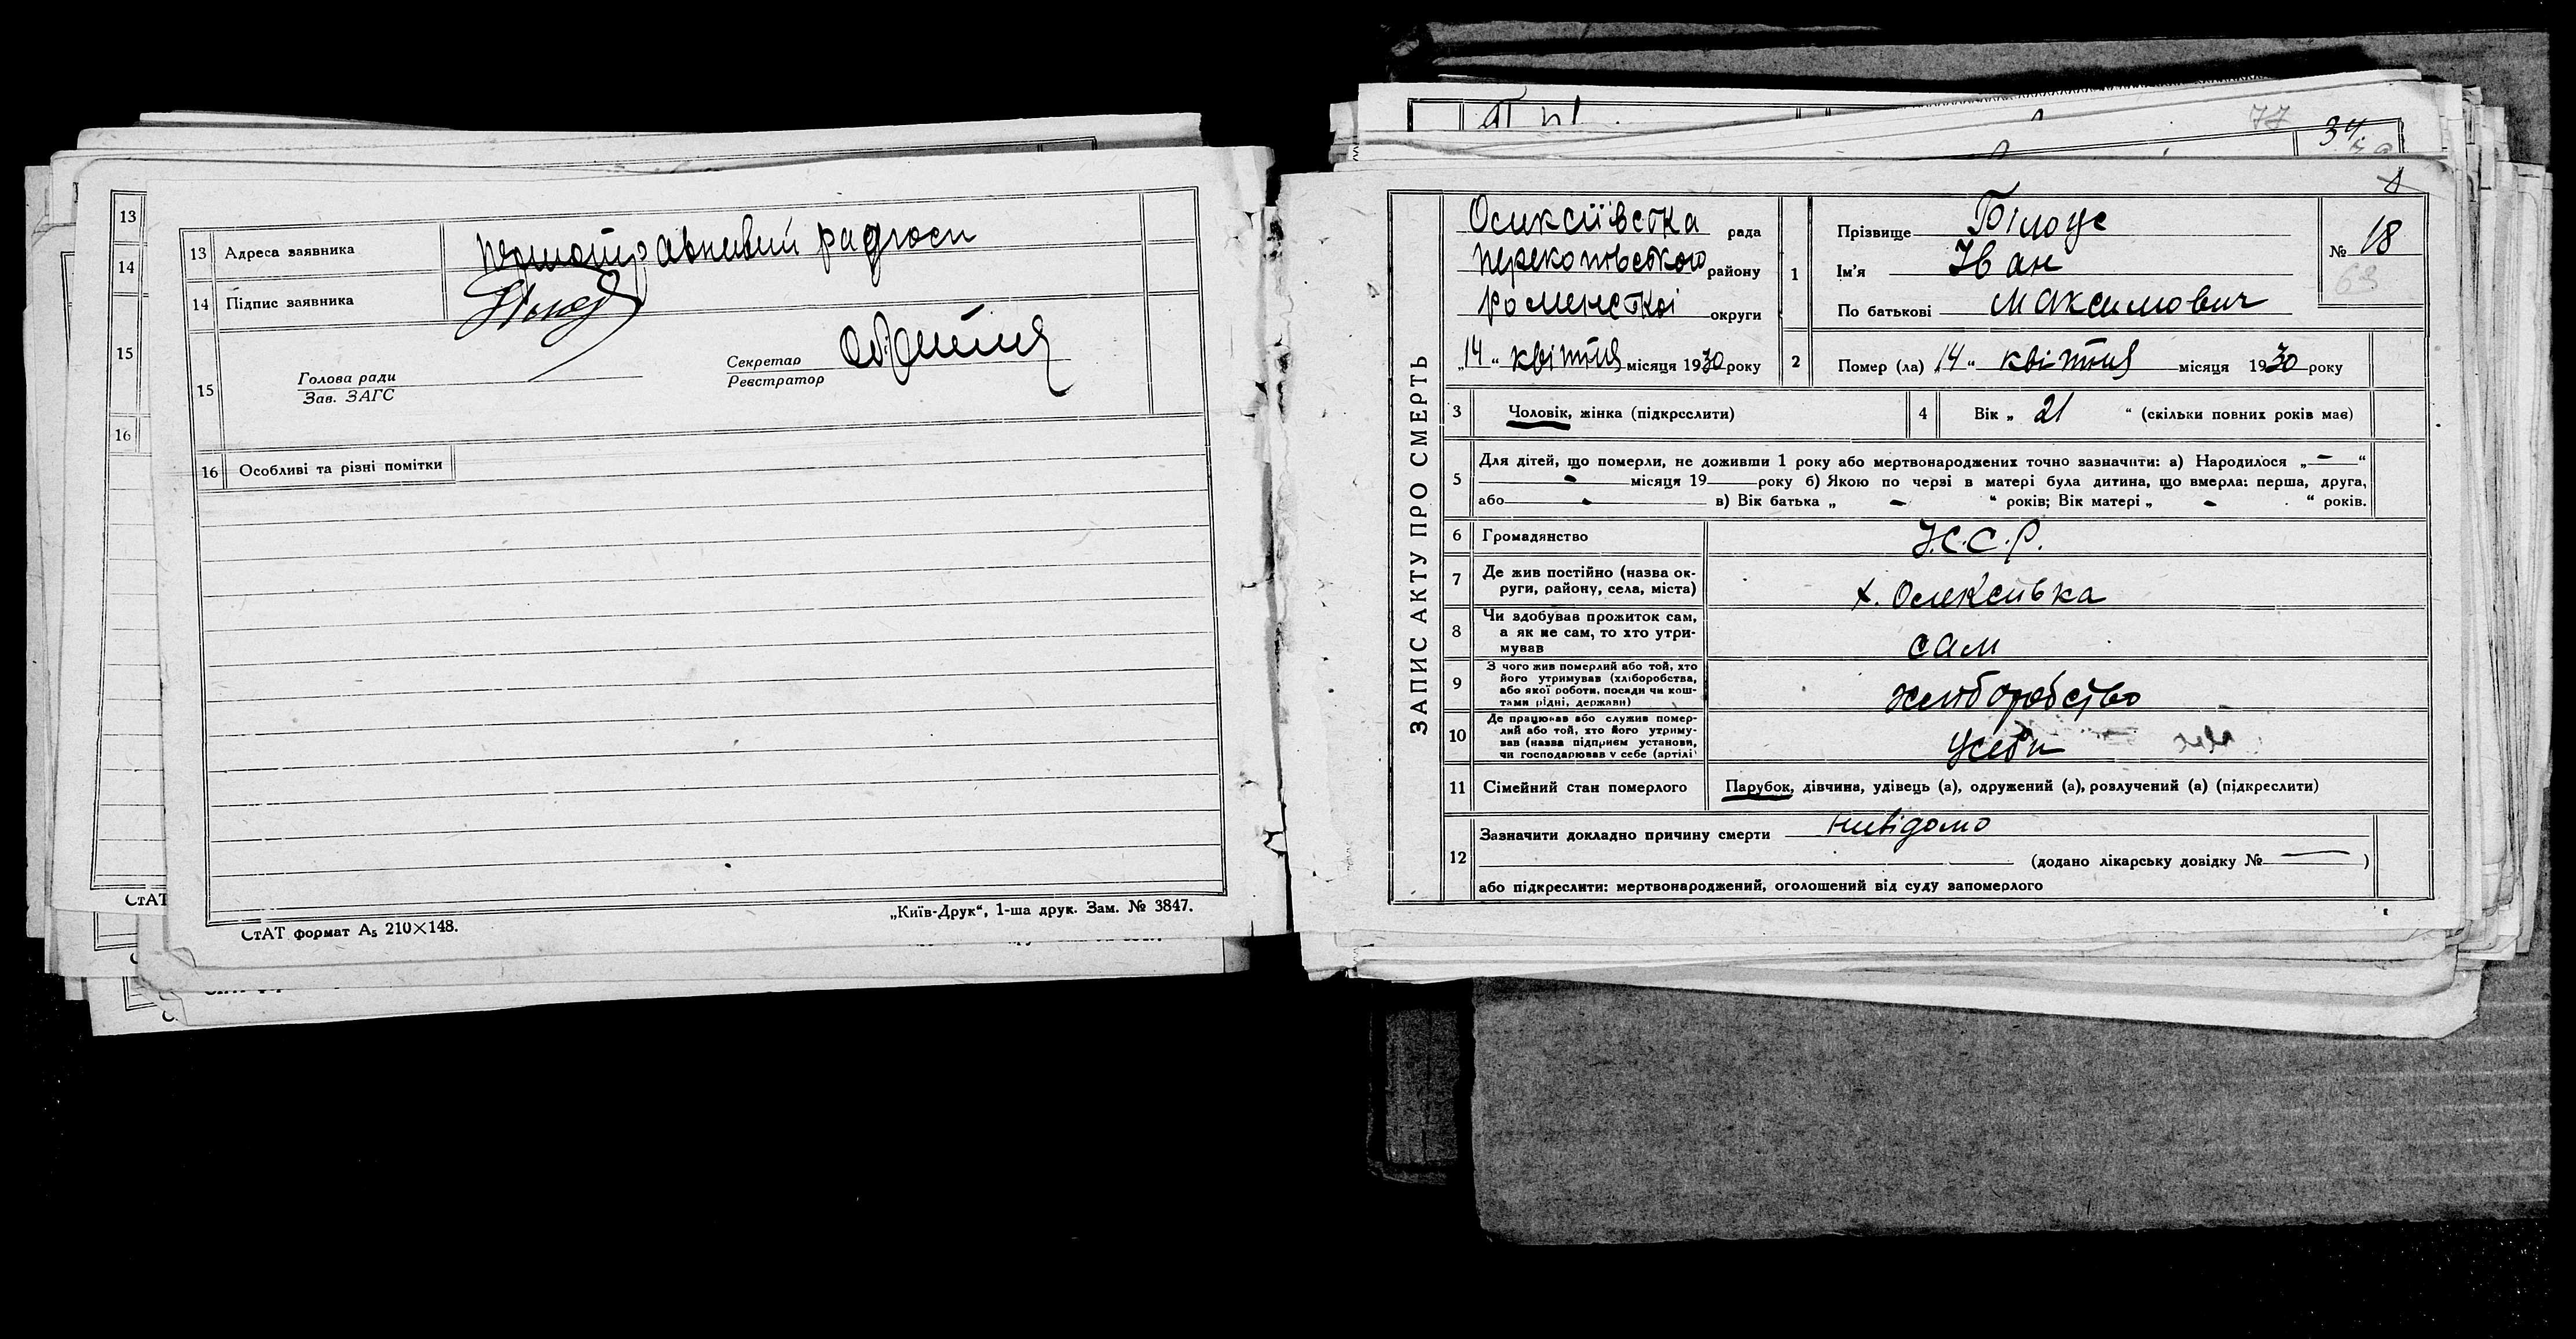 13
14
15
16
13 Адреса заявника першотравневий радгосп
14 Підпис заявника
15 Голова ради
Зав. ЗАГС
Секретар
Реєстратор
16 Особливі та різні помітки
СтАТ формат А₅ 210×148.
„Київ-Друк“, 1-ша друк. Зам. № 3847.
СтАТ
77
34.
ЗАПИС АКТУ ПРО СМЕРТЬ
Олексіївська рада
Перекопівського району
Роменської округи
„14“ квітня місяця 1930 року
1 Прізвище Білоус
Ім'я Іван
По батькові Максимович
№ 18
63
2 Помер (ла) „14“ квітня місяця 1930 року
3 Чоловік, жінка (підкреслити)
4 Вік „ 21 “ (скільки повних років мав)
5 Для дітей, що померли, не доживши 1 року або мертвонароджених точно зазначити: а) Народилося „ — “
— місяця 19 — року б) Якою по черзі в матері була дитина, що вмерла: перша, друга,
або - в) Вік батька „ - “ років; Вік матері „ - “ років.
6 Громадянство У.С.С.Р.
7 Де жив постійно (назва ок-
руги, району, села, міста) х. Олексіївка
8 Чи здобував прожиток сам,
а як не сам, то хто утри-
мував сам
9 З чого жив померлий або той, хто
його утримував (хліборобства,
або якої роботи, посади чи кош-
тами рідні, держави) хліборобство
10 Де працював або служив помер-
лий або той, хто його утриму-
вав (назва підприєм установи,
чи господарював у себе (артілі) у себе
11 Сімейний стан померлого Парубок, дівчина, удівець (а), одружений (а), розлучений (а) (підкреслити)
12 Зазначити докладно причину смерти невідомо
(додано лікарську довідку № — )
або підкреслити: мертвонароджений, оголошений від суду запомерлого